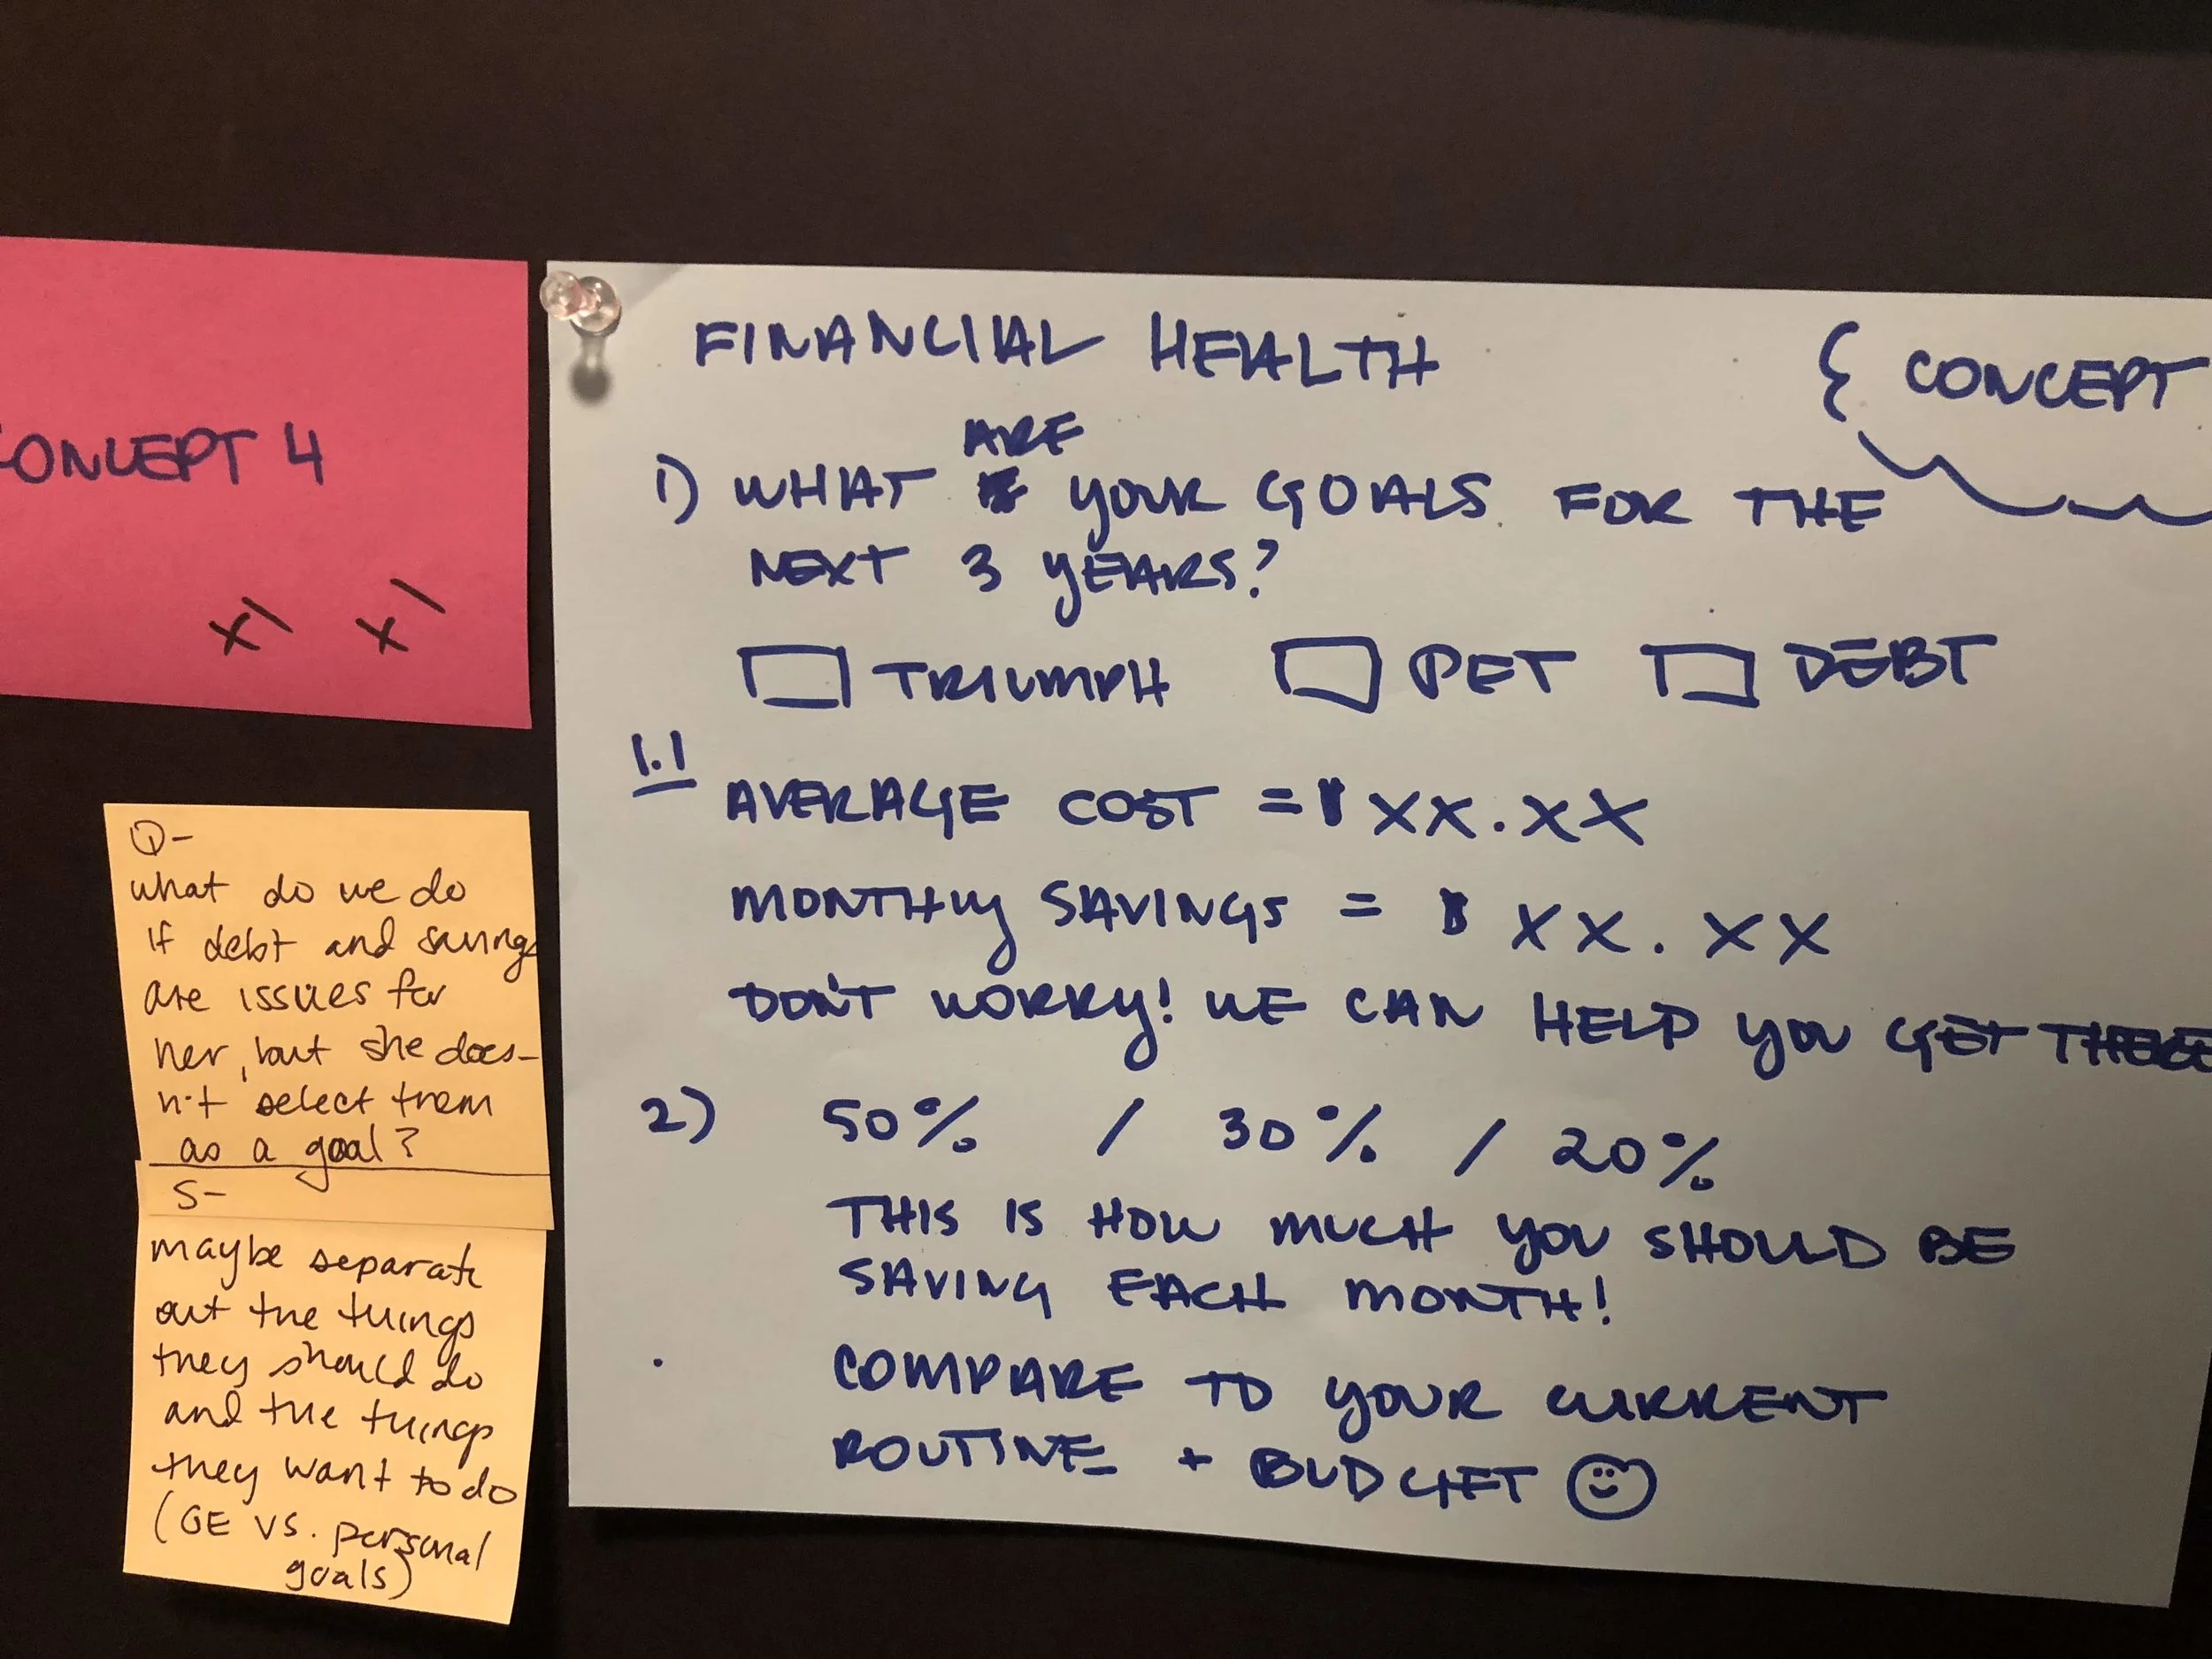 CONCEPT 4
X\ X\
Q-
what do we do
if debt and savings
are issues for
her, but she does-
n't select them
as a goal?
S-
maybe separate
out the things
they should do
and the things
they want to do
(GE vs. personal
goals)
FINANCIAL HEALTH
{ CONCEPT
ARE
1) WHAT YOUR GOALS FOR THE
NEXT 3 YEARS?
TRIUMPH PET DEBT
1.1
AVERAGE COST = $ XX.XX
MONTHLY SAVINGS = $ XX.XX
DON'T WORRY! WE CAN HELP YOU GET THERE
2) 50% / 30% / 20%
THIS IS HOW MUCH YOU SHOULD BE
SAVING EACH MONTH!
COMPARE TO YOUR CURRENT
ROUTINE + BUDGET